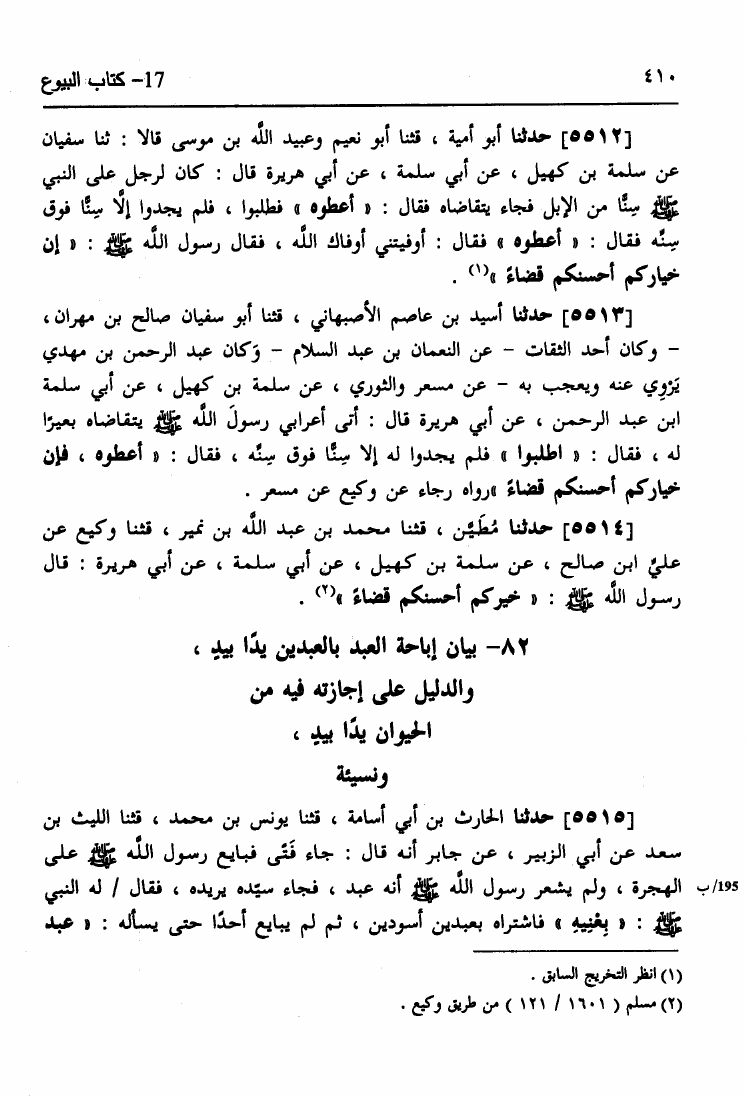 ٤١٠ 17- كتاب البيوع
[٥٥١٢] حدثنا أبو أمية ، قثنا أبو نعيم وعبيد اللَّه بن موسى قالا : ثنا سفيان
عن سلمة بن كهيل ، عن أبي سلمة ، عن أبي هريرة قال : كان لرجل على النبي
ﷺ سِنًّا من الإبل فجاء يتقاضاه فقال : « أعطوه » فطلبوا ، فلم يجدوا إلَّا سِنًّا فوق
سِنَّه فقال : « أعطوه » فقال : أوفيتني أوفاك اللَّه ، فقال رسول اللَّه ﷺ : « إن
خياركم أحسنكم قضاءً »(١) .
[٥٥١٣] حدثنا أسيد بن عاصم الأصبهاني ، قثنا أبو سفيان صالح بن مهران،
- وكان أحد الثقات - عن النعمان بن عبد السلام - وَكان عبد الرحمن بن مهدي
يَرْوِي عنه ويعجب به - عن مسعر والثوري ، عن سلمة بن كهيل ، عن أبي سلمة
ابن عبد الرحمن ، عن أبي هريرة قال : أتى أعرابي رسولَ اللَّه ﷺ يتقاضاه بعيرًا
له ، فقال : « اطلبوا » فلم يجدوا له إلا سِنًّا فوق سِنَّه ، فقال : « أعطوه ، فإن
خياركم أحسنكم قضاءً »رواه رجاء عن وكيع عن مسعر .
[٥٥١٤] حدثنا مُطَيَّن ، قثنا محمد بن عبد اللَّه بن نمير ، قثنا وكيع عن
عليِّ ابن صالح ، عن سلمة بن كهيل ، عن أبي سلمة ، عن أبي هريرة : قال
رسول اللَّه ﷺ : « خيركم أحسنكم قضاءً »(٢) .
٨٢- بيان إباحة العبد بالعبدين يدًا بيدٍ ،
والدليل على إجازته فيه من
الحيوان يدًا بيدٍ ،
ونسيئة
[٥٥١٥] حدثنا الحارث بن أبي أسامة ، قثنا يونس بن محمد ، قثنا الليث بن
سعد عن أبي الزبير ، عن جابر أنه قال : جاء فَتًى فبايع رسول اللَّه ﷺ على
195/ب الهجرة ، ولم يشعر رسول اللَّه ﷺ أنه عبد ، فجاء سيّده يريده ، فقال / له النبي
ﷺ : « بِعْنِيهِ » فاشتراه بعبدين أسودين ، ثم لم يبايع أحدًا حتى يسأله : « عبد
(١) انظر التخريج السابق .
(٢) مسلم ( ١٦٠١ / ١٢١ ) من طريق وكيع .